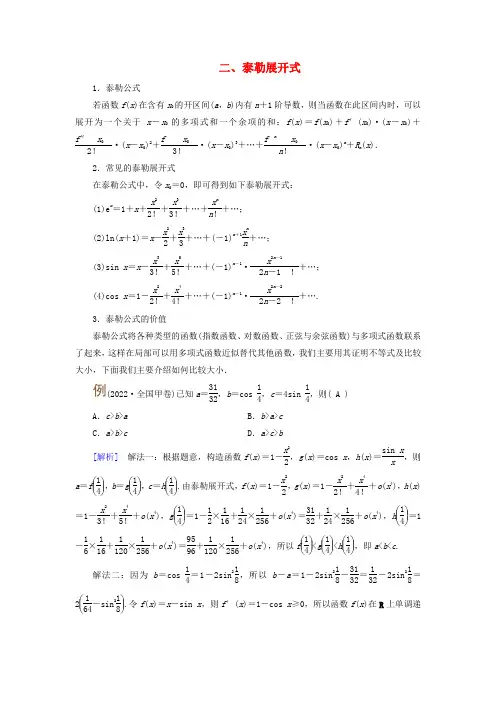 二、泰勒展开式
1．泰勒公式
若函数 f(x)在含有 x₀的开区间(a，b)内有 n＋1 阶导数，则当函数在此区间内时，可以
展开为一个关于 x－x₀的多项式和一个余项的和：f(x)＝f(x₀)＋f′(x₀)·(x－x₀)＋
f″ x₀/2！·(x－x₀)²＋f x₀/3！·(x－x₀)³＋…＋f ⁿ x₀/n！·(x－x₀)ⁿ＋Rₙ(x)．
2．常见的泰勒展开式
在泰勒公式中，令 x₀＝0，即可得到如下泰勒展开式：
(1)eˣ＝1＋x＋x²/2！＋x³/3！＋…＋xⁿ/n！＋…；
(2)ln(x＋1)＝x－x²/2＋x³/3＋…＋(－1)ⁿ⁺¹xⁿ/n＋…；
(3)sin x＝x－x³/3！＋x⁵/5！＋…＋(－1)ⁿ⁻¹·x²ⁿ⁻¹/2n－1 ！＋…；
(4)cos x＝1－x²/2！＋x⁴/4！＋…＋(－1)ⁿ⁻¹·x²ⁿ⁻²/2n－2 ！＋….
3．泰勒公式的价值
泰勒公式将各种类型的函数(指数函数、对数函数、正弦与余弦函数)与多项式函数联系
了起来，这样在局部可以用多项式函数近似替代其他函数，我们主要用其证明不等式及比较
大小，下面我们主要介绍如何比较大小．
例 (2022·全国甲卷)已知 a＝31/32，b＝cos 1/4，c＝4sin 1/4，则( A )
A．c>b>a B．b>a>c
C．a>b>c D．a>c>b
[解析] 解法一：根据题意，构造函数 f(x)＝1－x²/2，g(x)＝cos x，h(x)＝sin x/x，则
a＝f(1/4)，b＝g(1/4)，c＝h(1/4).由泰勒展开式，f(x)＝1－x²/2，g(x)＝1－x²/2！＋x⁴/4！＋o(x⁴)，h(x)
＝1－x²/3！＋x⁴/5！＋o(x⁴)，g(1/4)＝1－1/2×1/16＋1/24×1/256＋o(x⁴)＝31/32＋1/24×1/256＋o(x⁴)，h(1/4)＝1
－1/6×1/16＋1/120×1/256＋o(x⁴)＝95/96＋1/120×1/256＋o(x⁴)，所以 f(1/4)<g(1/4)<h(1/4)，即 a<b<c.
解法二：因为 b＝cos 1/4＝1－2sin²1/8，所以 b－a＝1－2sin²1/8－31/32＝1/32－2sin²1/8＝
2(1/64－sin²1/8).令 f(x)＝x－sin x，则 f′(x)＝1－cos x≥0，所以函数 f(x)在 R 上单调递